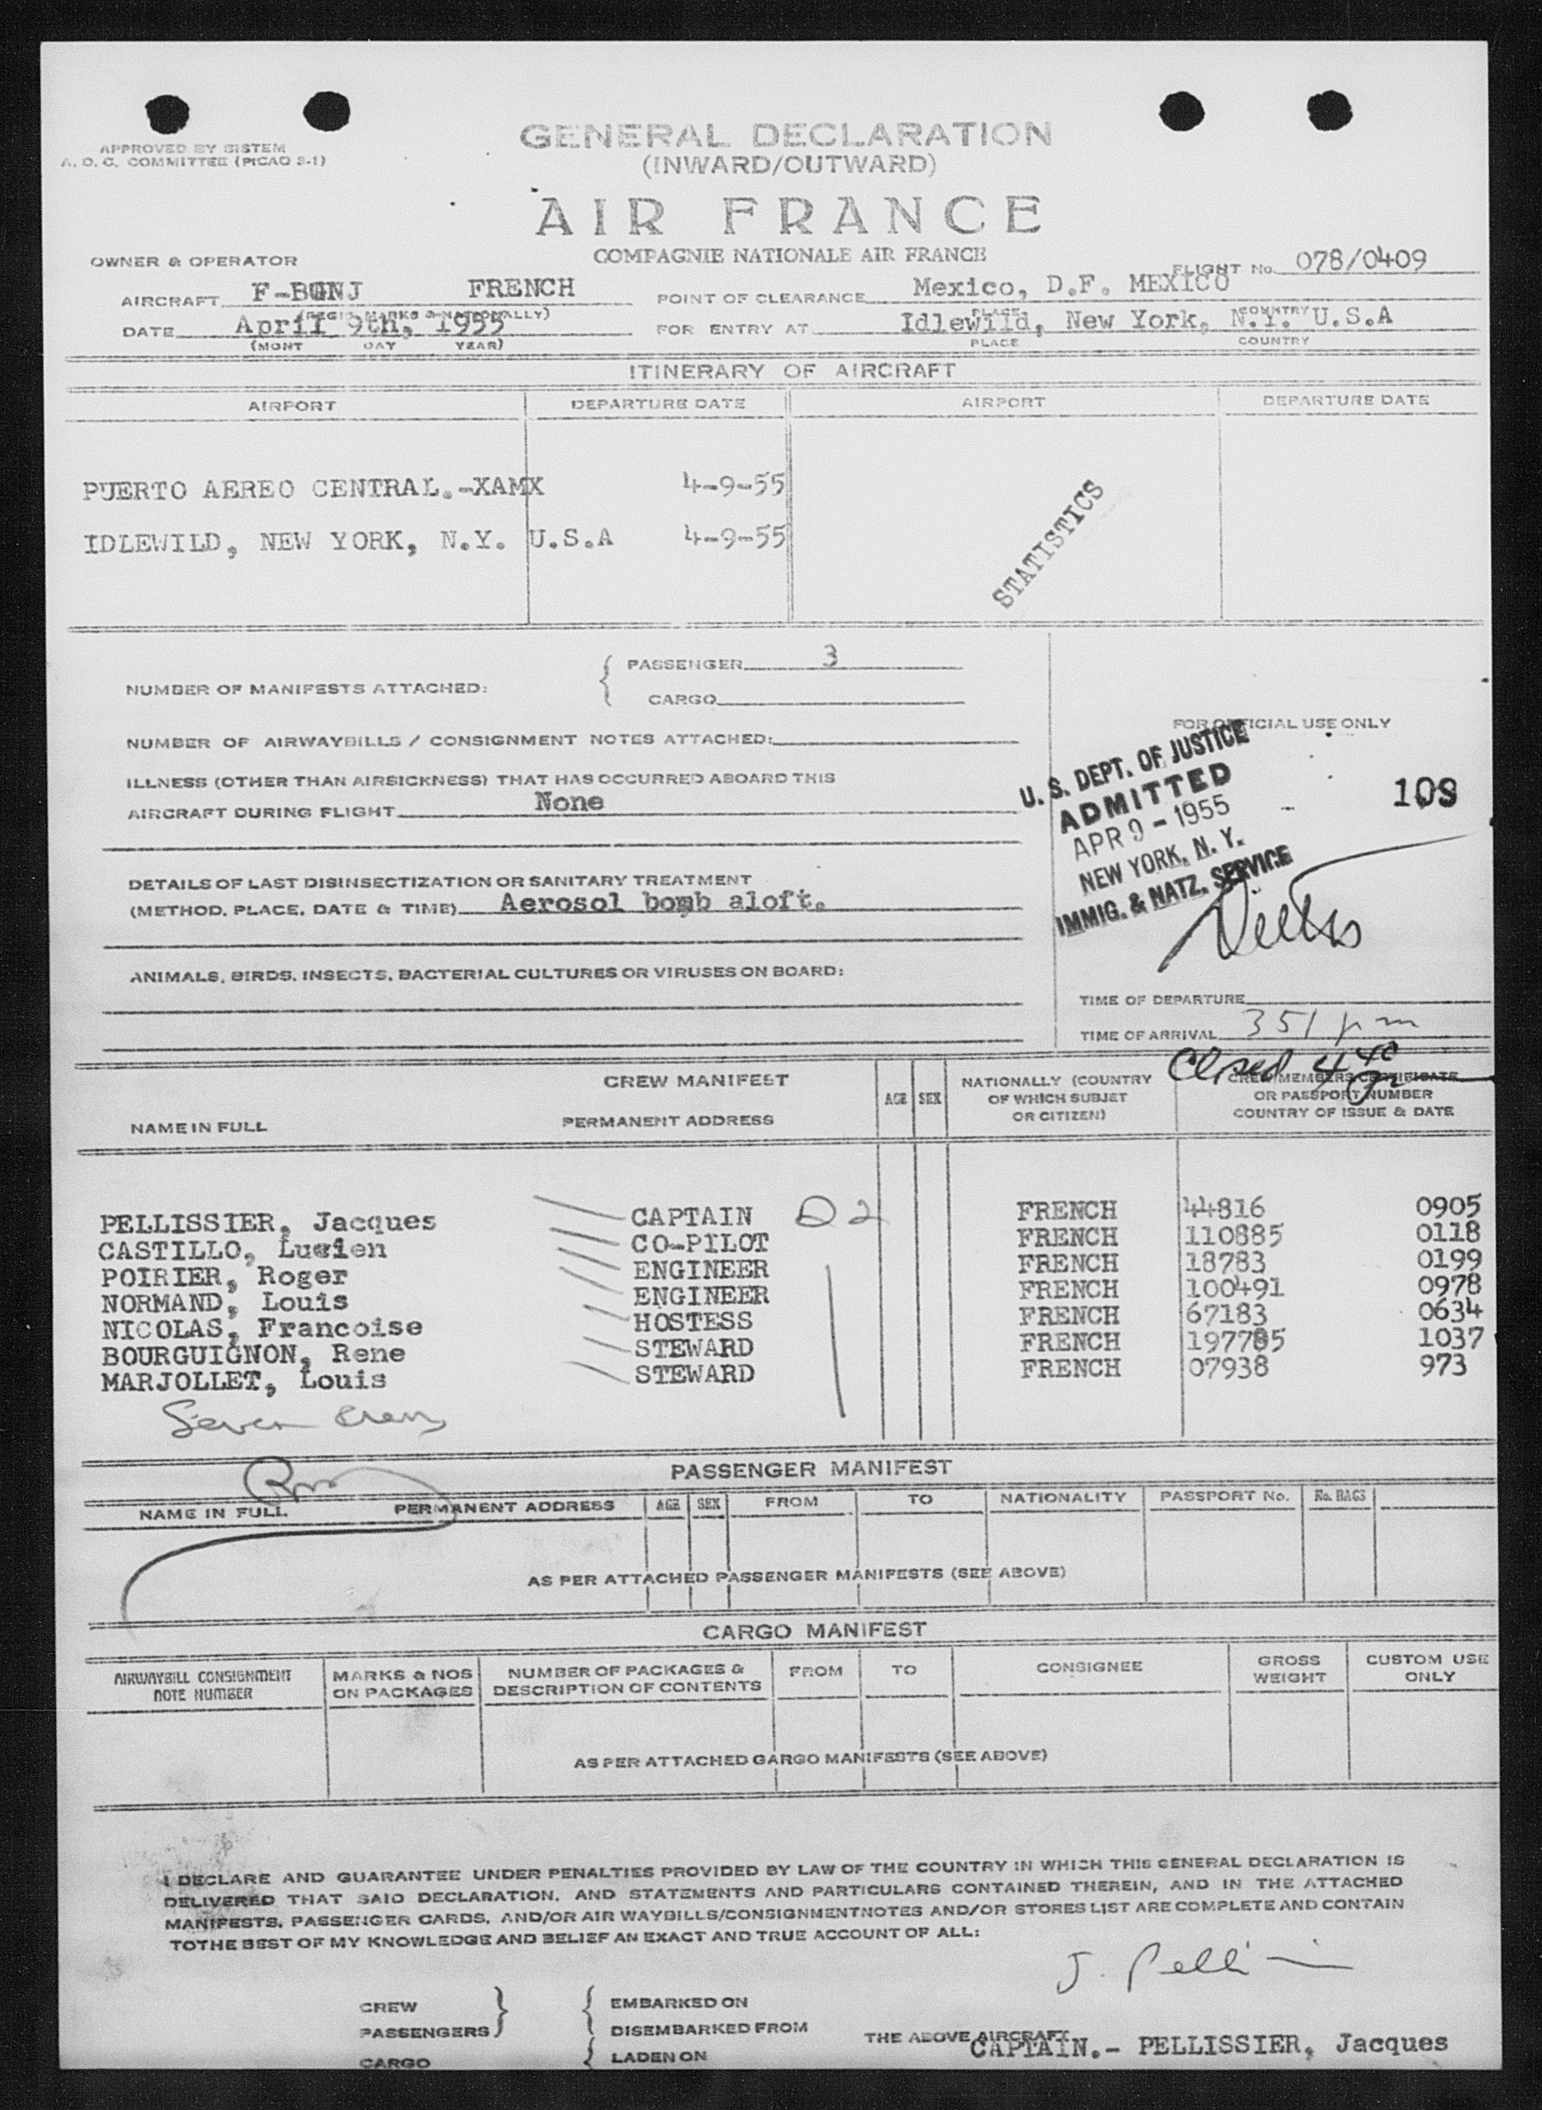 APPROVED BY SISTEM
A. O. C. COMMITTEE (PICAO 2-1)
GENERAL DECLARATION
(INWARD/OUTWARD)
AIR FRANCE
COMPAGNIE NATIONALE AIR FRANCE
OWNER & OPERATOR
FLIGHT No. 078/0409
AIRCRAFT F-BGNJ FRENCH
(REGIS. MARKS & NATIONALLY)
POINT OF CLEARANCE Mexico, D.F. MEXICO
PLACE COUNTRY
DATE April 9th, 1955
(MONT DAY YEAR)
FOR ENTRY AT Idlewild, New York, N.Y. U.S.A
PLACE COUNTRY
ITINERARY OF AIRCRAFT
AIRPORT DEPARTURE DATE AIRPORT DEPARTURE DATE
PUERTO AEREO CENTRAL.-XAMX 4-9-55
IDLEWILD, NEW YORK, N.Y. U.S.A 4-9-55
STATISTICS
NUMBER OF MANIFESTS ATTACHED:
PASSENGER 3
CARGO
NUMBER OF AIRWAYBILLS / CONSIGNMENT NOTES ATTACHED:
ILLNESS (OTHER THAN AIRSICKNESS) THAT HAS OCCURRED ABOARD THIS
AIRCRAFT DURING FLIGHT None
DETAILS OF LAST DISINSECTIZATION OR SANITARY TREATMENT
(METHOD, PLACE, DATE & TIME) Aerosol bomb aloft.
ANIMALS, BIRDS, INSECTS, BACTERIAL CULTURES OR VIRUSES ON BOARD:
FOR OFFICIAL USE ONLY
U. S. DEPT. OF JUSTICE
ADMITTED
APR 9 - 1955
NEW YORK, N. Y.
IMMIG. & NATZ. SERVICE
109
TIME OF DEPARTURE
TIME OF ARRIVAL 351 pm
Closed 440
CREW MANIFEST
NAME IN FULL PERMANENT ADDRESS
AGE SEX
NATIONALLY (COUNTRY
OF WHICH SUBJET
OR CITIZEN)
CREW MEMBERS CERTIFICATE
OR PASSPORT NUMBER
COUNTRY OF ISSUE & DATE
PELLISSIER, Jacques CAPTAIN D2 FRENCH 44816 0905
CASTILLO, Lucien CO-PILOT FRENCH 110885 0118
POIRIER, Roger ENGINEER FRENCH 18783 0199
NORMAND, Louis ENGINEER FRENCH 100491 0978
NICOLAS, Francoise HOSTESS FRENCH 67183 0634
BOURGUIGNON, Rene STEWARD FRENCH 197785 1037
MARJOLLET, Louis STEWARD FRENCH 07938 973
Seven Crew
PASSENGER MANIFEST
NAME IN FULL PERMANENT ADDRESS AGE SEX FROM TO NATIONALITY PASSPORT No. No. BAGS
AS PER ATTACHED PASSENGER MANIFESTS (SEE ABOVE)
CARGO MANIFEST
AIRWAYBILL CONSIGNMENT
NOTE NUMBER
MARKS & NOS
ON PACKAGES
NUMBER OF PACKAGES &
DESCRIPTION OF CONTENTS
FROM TO CONSIGNEE
GROSS
WEIGHT
CUSTOM USE
ONLY
AS PER ATTACHED CARGO MANIFESTS (SEE ABOVE)
I DECLARE AND GUARANTEE UNDER PENALTIES PROVIDED BY LAW OF THE COUNTRY IN WHICH THIS GENERAL DECLARATION IS
DELIVERED THAT SAID DECLARATION, AND STATEMENTS AND PARTICULARS CONTAINED THEREIN, AND IN THE ATTACHED
MANIFESTS, PASSENGER CARDS, AND/OR AIR WAYBILLS/CONSIGNMENTNOTES AND/OR STORES LIST ARE COMPLETE AND CONTAIN
TOTHE BEST OF MY KNOWLEDGE AND BELIEF AN EXACT AND TRUE ACCOUNT OF ALL:
CREW EMBARKED ON
PASSENGERS DISEMBARKED FROM
CARGO LADEN ON
THE ABOVE AIRCRAFT
CAPTAIN.- PELLISSIER, Jacques